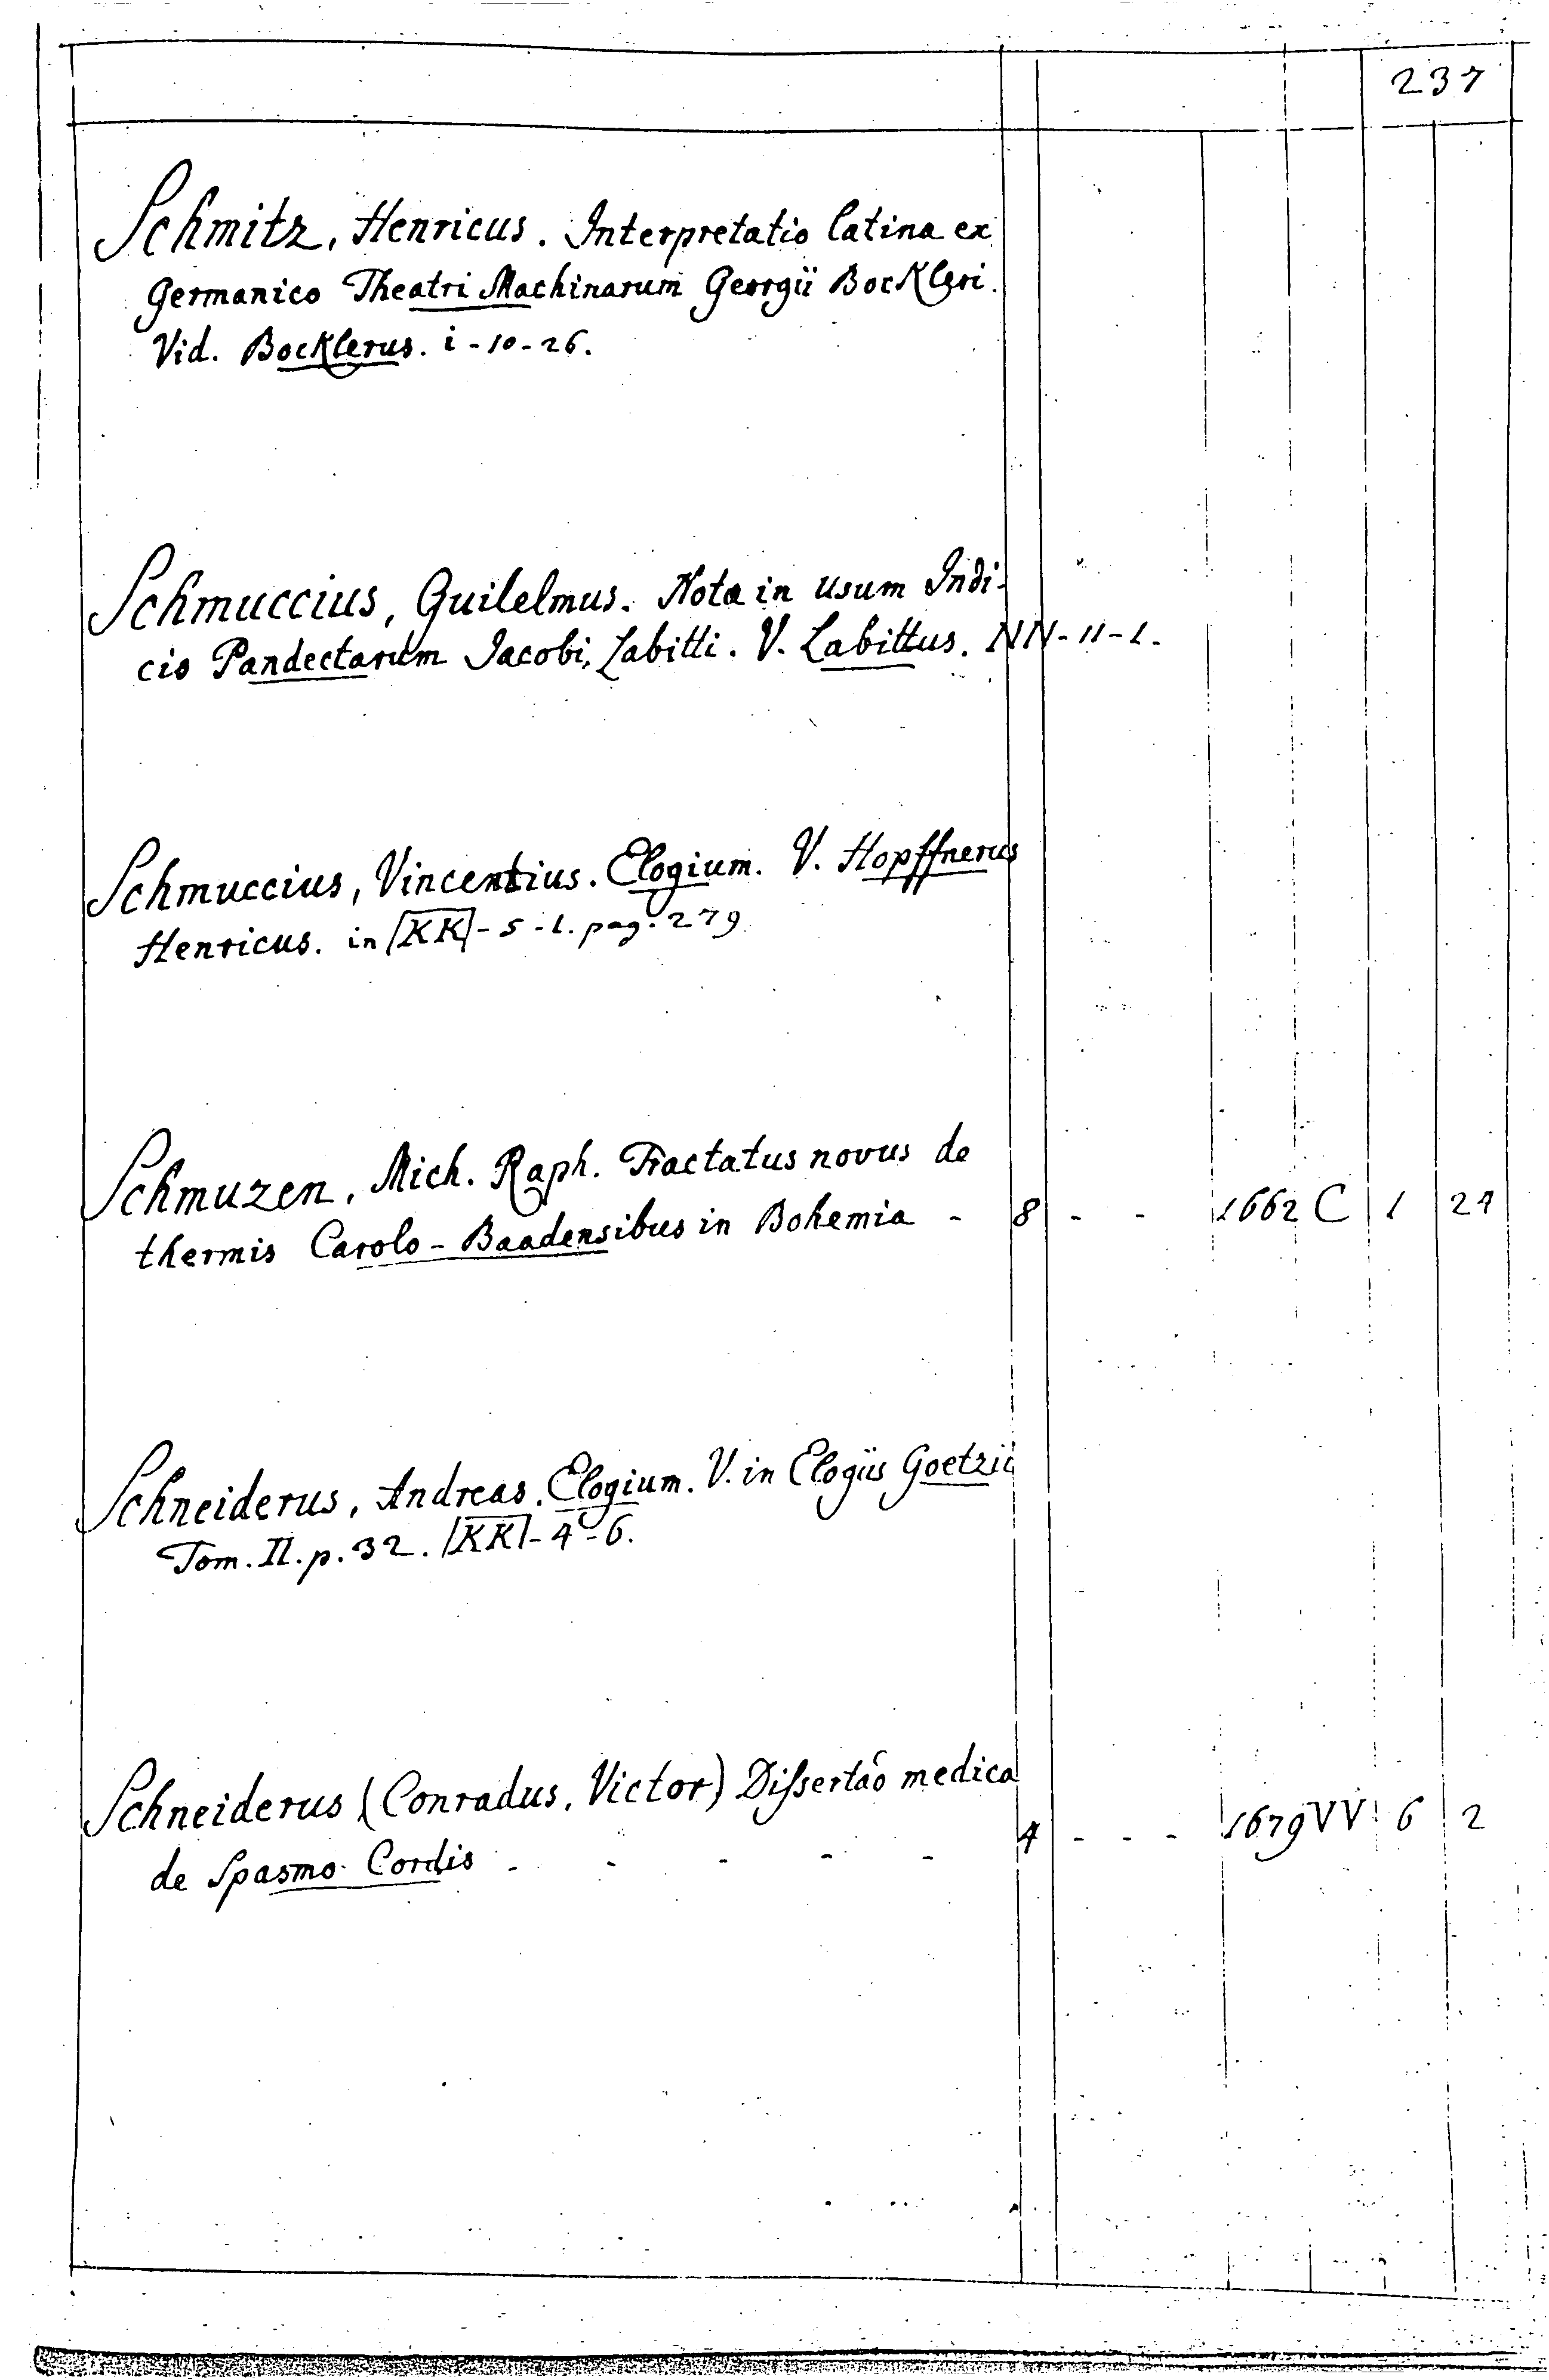 237
Schmitz, Henricus. Interpretatio latina ex
Germanico Theatri Machinarum Georgii Bockleri.
Vid. Bocklerus. i-10-26.
Schmuccius, Guilelmus. Nota in usum Indi-
cis Pandectarum Jacobi, Labitti. V. Labittus. NN-11-1.
Schmuccius, Vincentius. Elogium. V. Hopffnerus
Henricus. in KK-5-1. pag. 279
Schmuzen, Mich. Raph. Tractatus novus de
thermis Carolo-Baadensibus in Bohemia - 8 - - 1662 C 1 24
Schneiderus, Andreas. Elogium. V. in Elogiis Goetzii
Tom. II. p. 32. KK-4-6.
Schneiderus (Conradus, Victor) Dissertaô medica
de Spasmo Cordis - - - - - 4 - - - 1679 VV 6 2